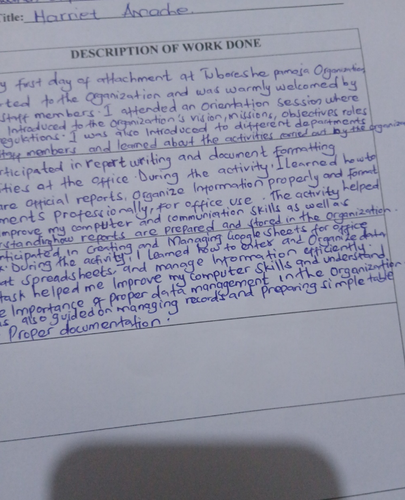 Title: Harriet Apache.
DESCRIPTION OF WORK DONE
y first day of attachment at Tuboreshe pamoja Organization
rted to the Organization and was warmly welcomed by
staff members. I attended an Orientation session where
Introduced to the organization's vision, missions, objectives roles
regulations. I was also Introduced to different departments
staff members and learned about the activities carried out by the organization
rticipated in report writing and document formatting
ities at the office. During the activity, I learned how to
are Official reports, Organize Information properly and format
ments professionally, for office use. The activity helped
improve my computer and communication skills as well as
rstanding how reports are prepared and stored in the organization.
nticipated in creating and Managing Google sheets for office
k. During the activity, I learned how to enter and Organize data,
at spreadsheets, and manage Information efficiently.
task helped me Improve my computer skills and understand
e Importance of proper data management in the Organization
s also guided on managing records and preparing simple table
Proper documentation.